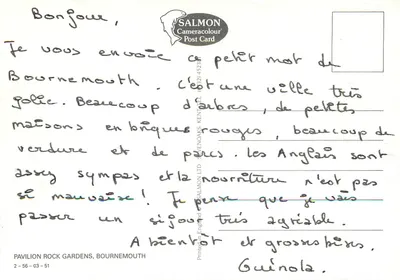 Bonjour,
SALMON
Cameracolour
Post Card
Je vous envoie ce petit mot de
Bournemouth. C'est une ville très
jolie. Beaucoup d'arbres, de petites
maisons en briques rouges, beaucoup de
verdure et de parcs. Les Anglais sont
assez sympas et la nourriture n'est pas
si mauvaise! Je pense que je vais
passer un séjour très agréable.
A bientôt et grosses bises.
Guénola.
PAVILION ROCK GARDENS, BOURNEMOUTH
2-56-03-51